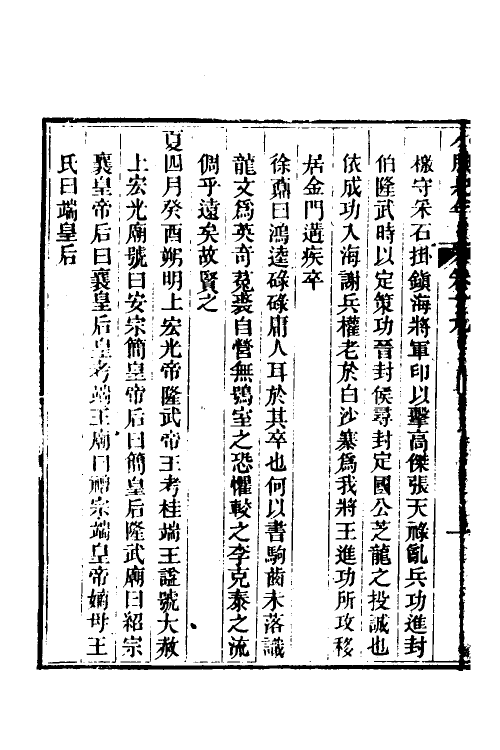 檄守采石掛鎮海將軍印以擊高傑張天祿亂兵功進封
伯隆武時以定策功晉封侯尋封定國公芝龍之投誠也
依成功入海謝兵權老於白沙寨為我將王進功所攻移
居金門遘疾卒
徐鼒曰鴻逵碌碌庸人耳於其卒也何以書駒齒未落識
龍文為英奇菟裘自營無鴞室之恐懼較之李克泰之流
倜乎遠矣故賢之
夏四月癸酉朔明上宏光帝隆武帝王考桂端王諡號大赦
上宏光廟號曰安宗簡皇帝后曰簡皇后隆武廟曰紹宗
襄皇帝后曰襄皇后皇考端王廟曰禮宗端皇帝嫡母王
氏曰端皇后